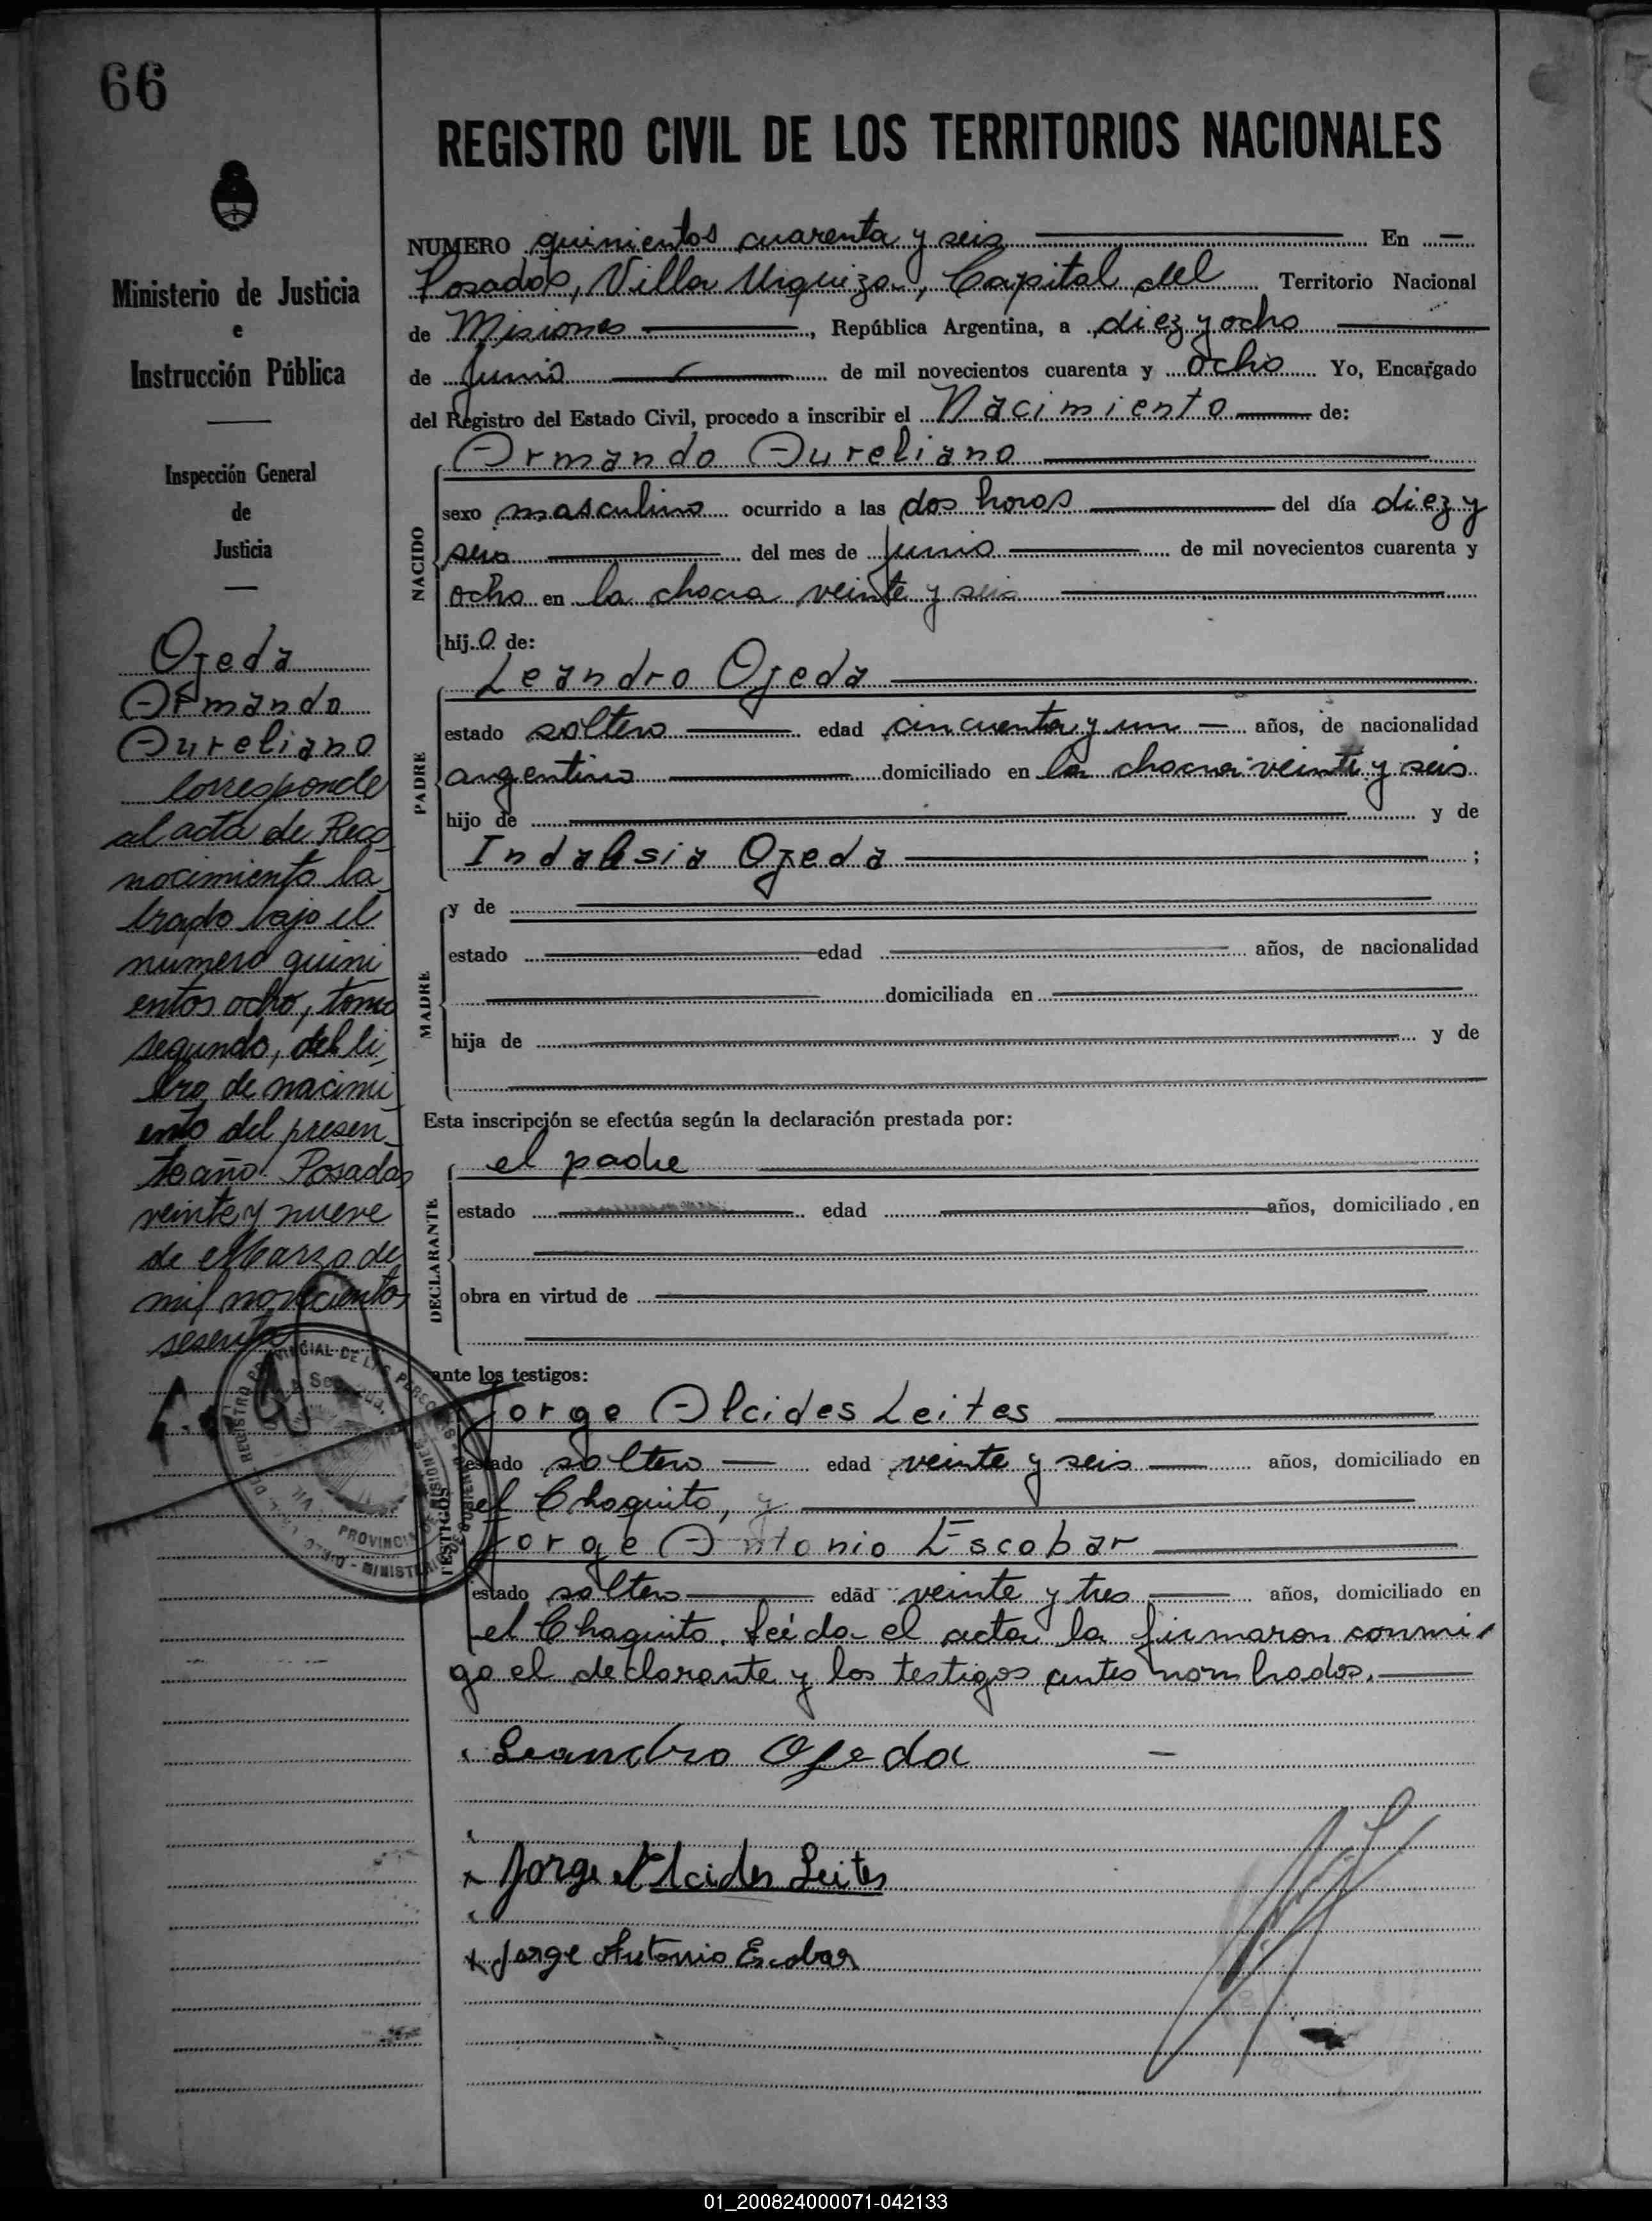 66
REGISTRO CIVIL DE LOS TERRITORIOS NACIONALES
Ministerio de Justicia
e
Instrucción Pública
Inspección General
de
Justicia
Ojeda
Armando
Aureliano
Corresponde
al acta de Reco
nocimiento la
brado bajo el
numero quini
entos ocho, tomo
segundo, del li
bro de nacimi
ento del presen
te año. Posadas
veinte y nueve
de Marzo de
mil novecientos
sesenta
NUMERO quinientos cuarenta y seis En
Posadas, Villa Urquiza, Capital del Territorio Nacional
de Misiones, República Argentina, a diez y ocho
de Junio de mil novecientos cuarenta y ocho Yo, Encargado
del Registro del Estado Civil, procedo a inscribir el Nacimiento de:
Armando Aureliano
NACIDO
sexo masculino ocurrido a las dos horas del día diez y
seis del mes de Junio de mil novecientos cuarenta y
ocho en la chacra veinte y seis
hijo de:
Leandro Ojeda
PADRE
estado soltero edad cincuenta y un años, de nacionalidad
argentino domiciliado en la chacra veinte y seis
hijo de y de
Indalesia Ojeda ;
MADRE
y de
estado edad años, de nacionalidad
domiciliada en
hija de y de
Esta inscripción se efectúa según la declaración prestada por:
el padre
DECLARANTE
estado edad años, domiciliado en
obra en virtud de
ante los testigos:
Jorge Alcides Leites
TESTIGOS
estado soltero edad veinte y seis años, domiciliado en
el Chaquito, y
Jorge Antonio Escobar
estado soltero edad veinte y tres años, domiciliado en
el Chaquito. Leída el acta la firmaron conmi
go el declarante y los testigos antes nombrados.
Leandro Ojeda
Jorge Alcides Leites
Jorge Antonio Escobar
01_200824000071-042133